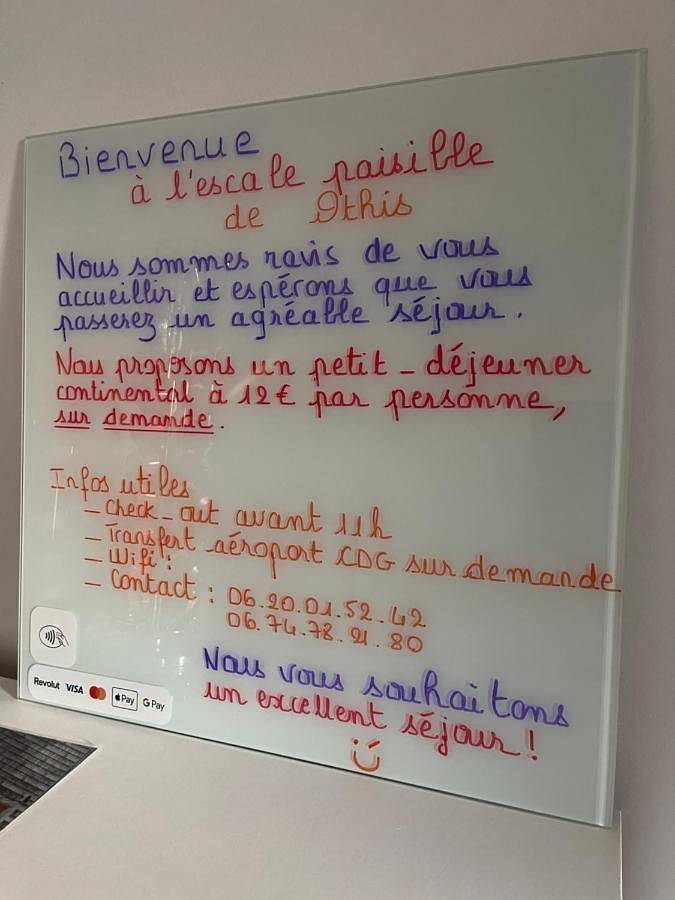 Bienvenue
à l'escale paisible
de Othis
Nous sommes ravis de vous
accueillir et espérons que vous
passerez un agréable séjour.
Nous proposons un petit-déjeuner
continental à 12€ par personne,
sur demande.
Infos utiles
- Check-out avant 11h
- Transfert aéroport CDG sur demande
- Wifi :
- Contact : 06.20.01.52.42
06.74.78.21.80
Nous vous souhaitons
un excellent séjour !
Revolut VISA Pay G Pay